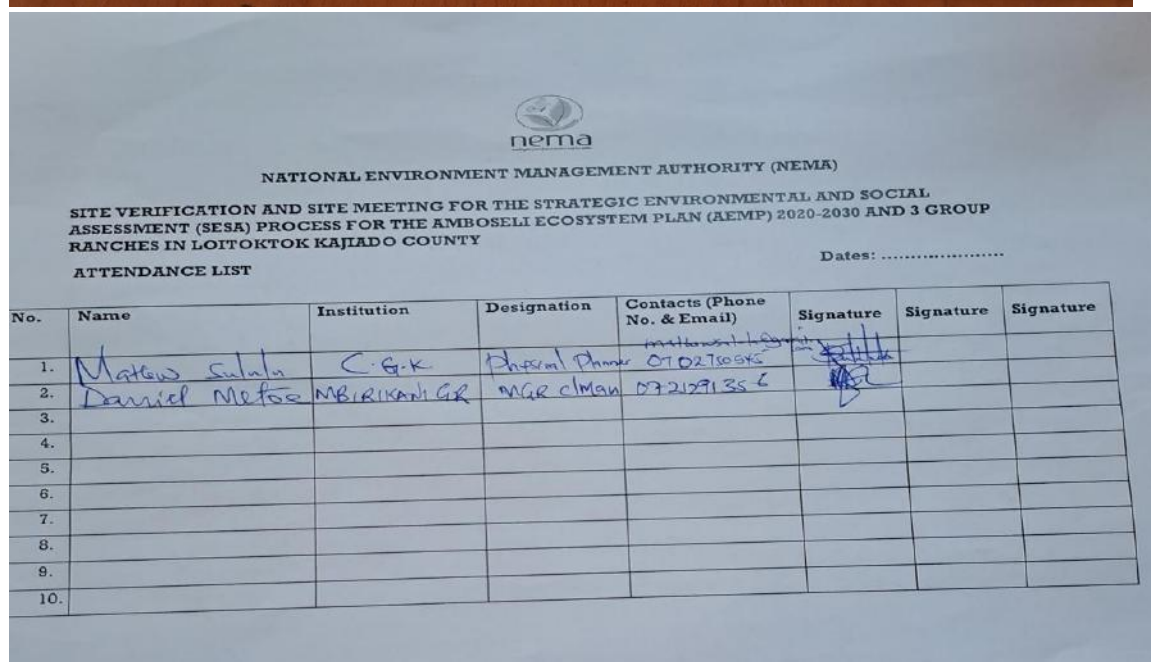 nema
NATIONAL ENVIRONMENT MANAGEMENT AUTHORITY (NEMA)
SITE VERIFICATION AND SITE MEETING FOR THE STRATEGIC ENVIRONMENTAL AND SOCIAL
ASSESSMENT (SESA) PROCESS FOR THE AMBOSELI ECOSYSTEM PLAN (AEMP) 2020-2030 AND 3 GROUP
RANCHES IN LOITOKTOK KAJIADO COUNTY
Dates: .....................
ATTENDANCE LIST
No. Name Institution Designation Contacts (Phone No. & Email) Signature Signature Signature
1. Matew C.G.K Physical Planner
2. Daniel MBIRIKANI GR MGR C/Man
3.
4.
5.
6.
7.
8.
9.
10.